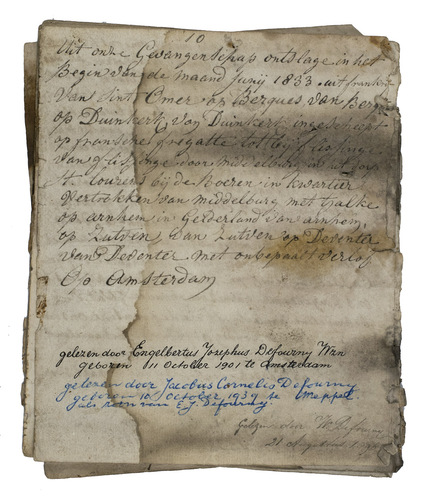 10
Uit onze Gevangenschap ontslage in het
Begin van de maand Junij 1833 uit frankrijk
van sint Omer op Bergues van Berg
op Duinkerk, van Duinkerk ingescheept
op franse fregatte tot
van door middelburg in het dorp
st. Lourens bij de Boeren in kwartier
Vertrokken van middelburg met
op arnhem in gelderland van arnhem,
op Zutven van Zutven op Deventer
van Deventer met onbepaalt verlof
Op Amsterdam
gelezen door Engelbertus Josephus Defourny Wzn
geboren 11 October 1901 te Amsterdam
gelezen door Jacobus Cornelis Defourny
geboren 10 October 1939 te Meppel
als zoon van E.J. Defourny.
Gelezen door Defourny
21 Augustus